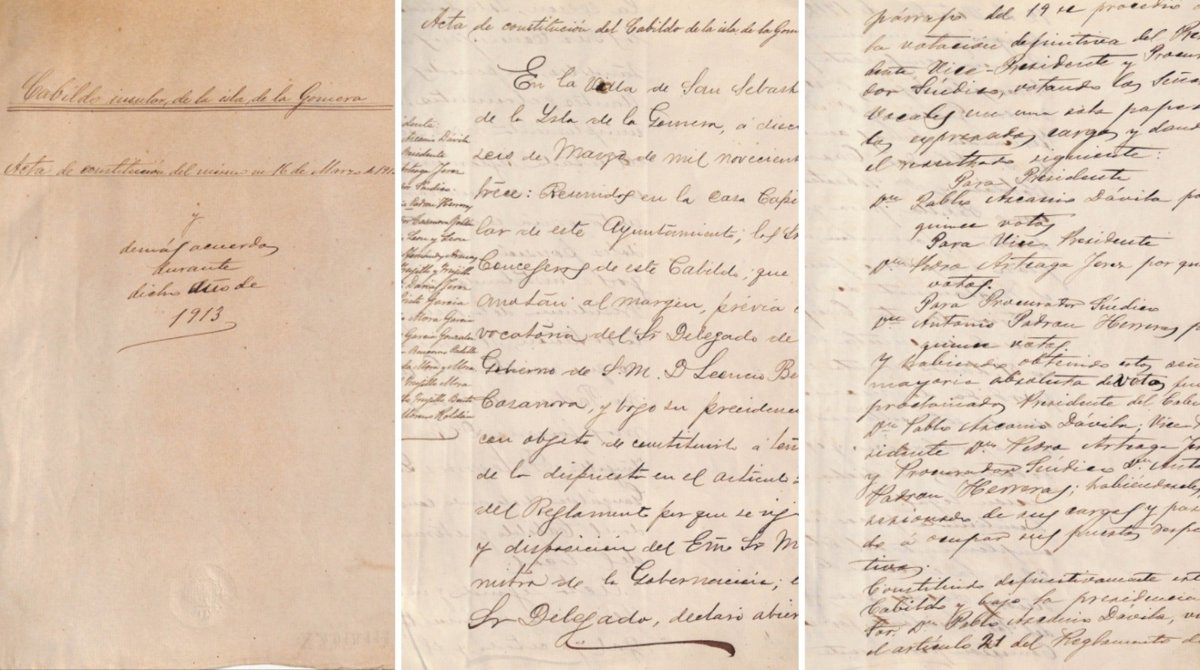 Cabildo insular de la isla de la Gomera
Acta de constitución del mismo en 16 de Marzo de 191
y
demás acuerdos
durante
dicho año de
1913
Acta de constitución del Cabildo de la isla de la Gom
En la Villa de San Sebast
de la Ysla de la Gomera, á diec
seis de Marzo de mil novecient
trece: Reunidos en la Casa Capi
lar de este Ayuntamiento, los Sr
Consejeros de este Cabildo, que
anotan al margen, prévia
vocatoria del Sr Delegado de
Gobierno de S. M. D Leoncio Be
Casanova, y bajo su presidenc
con objeto de constituirlo á ten
de lo dispuesto en el artículo
del Reglamento por que se rig
y disposición del Emo Sr M
nistro de la Gobernación; e
Sr Delegado, declaró abier
idente
Ascanio Dávila
residente
Arteaga Jerez
Síndico
Padrón Herrera
Leon y Leon
Trujillo y Trujillo
Daniel Jerez
García
Mora García
García Gonzale
Mora y Mora
Trujillo Mora
Trujillo
párrafo del 19 se procedió
la votación definitiva del Pre
dente, Vice-Presidente y Procura
dor Síndico, votando los Seño
Vocales en una sola papel
los expresados cargos y dan
el resultado siguiente:
Para Presidente
Dn Pablo Ascanio Dávila po
quince votos
Para Vice Presidente
Dn Pedro Arteaga Jerez por qu
votos.
Para Procurador Síndico
Dn Antonio Padrón Herrera p
quince votos.
y habiendo obtenido estos
mayoría absoluta de votos fu
proclamados Presidente del Cabi
Dn Pablo Ascanio Dávila; Vice-P
sidente Dn Pedro Arteaga Je
y Procurador Síndico Dn Ant
Padrón Herrera; habiéndose
sesionado de sus cargos y pa
do á ocupar sus puestos resp
tivos.
Constituido definitivamente est
Cabildo y bajo la presidencia
Sor. Dn Pablo Ascanio Dávila,
el artículo 21 del Reglamento d